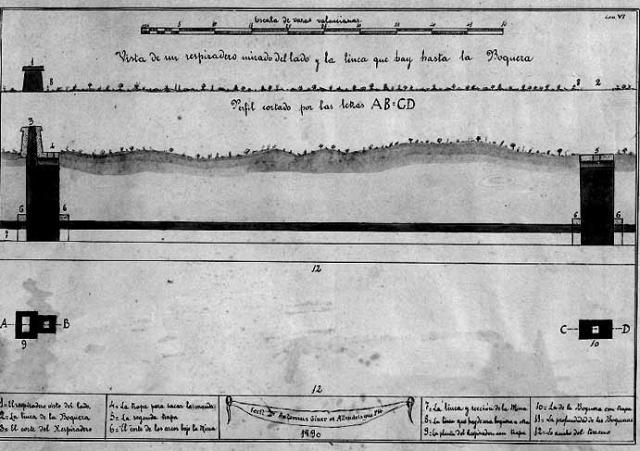 Escala de varas valencianas
Lam VI
5 10 15 20 25 30 35 40 45 50
Vista de un respiradero mirado del lado y la linea que hay hasta la Boquera
1
8
8 2
Perfil cortado por las letras AB=CD
3
4
5
6 6
6 6
7
12
A B
9
C D
10
12
1= El respiradero visto del lado
2= La linea de la Boquera
3= El corte del Respiradero
4= La Ropa para sacar
5= La segunda Ropa
6= El corte de los arcos bajo la Mina
1890
7= La linea y seccion de la Mina
8= La linea que hay de una boquera a otra
9= La planta del Respiradero con Ropa
10= La de la Boquera con Ropa
11= La profundidad de las Boqueras
12= Lo ancho del